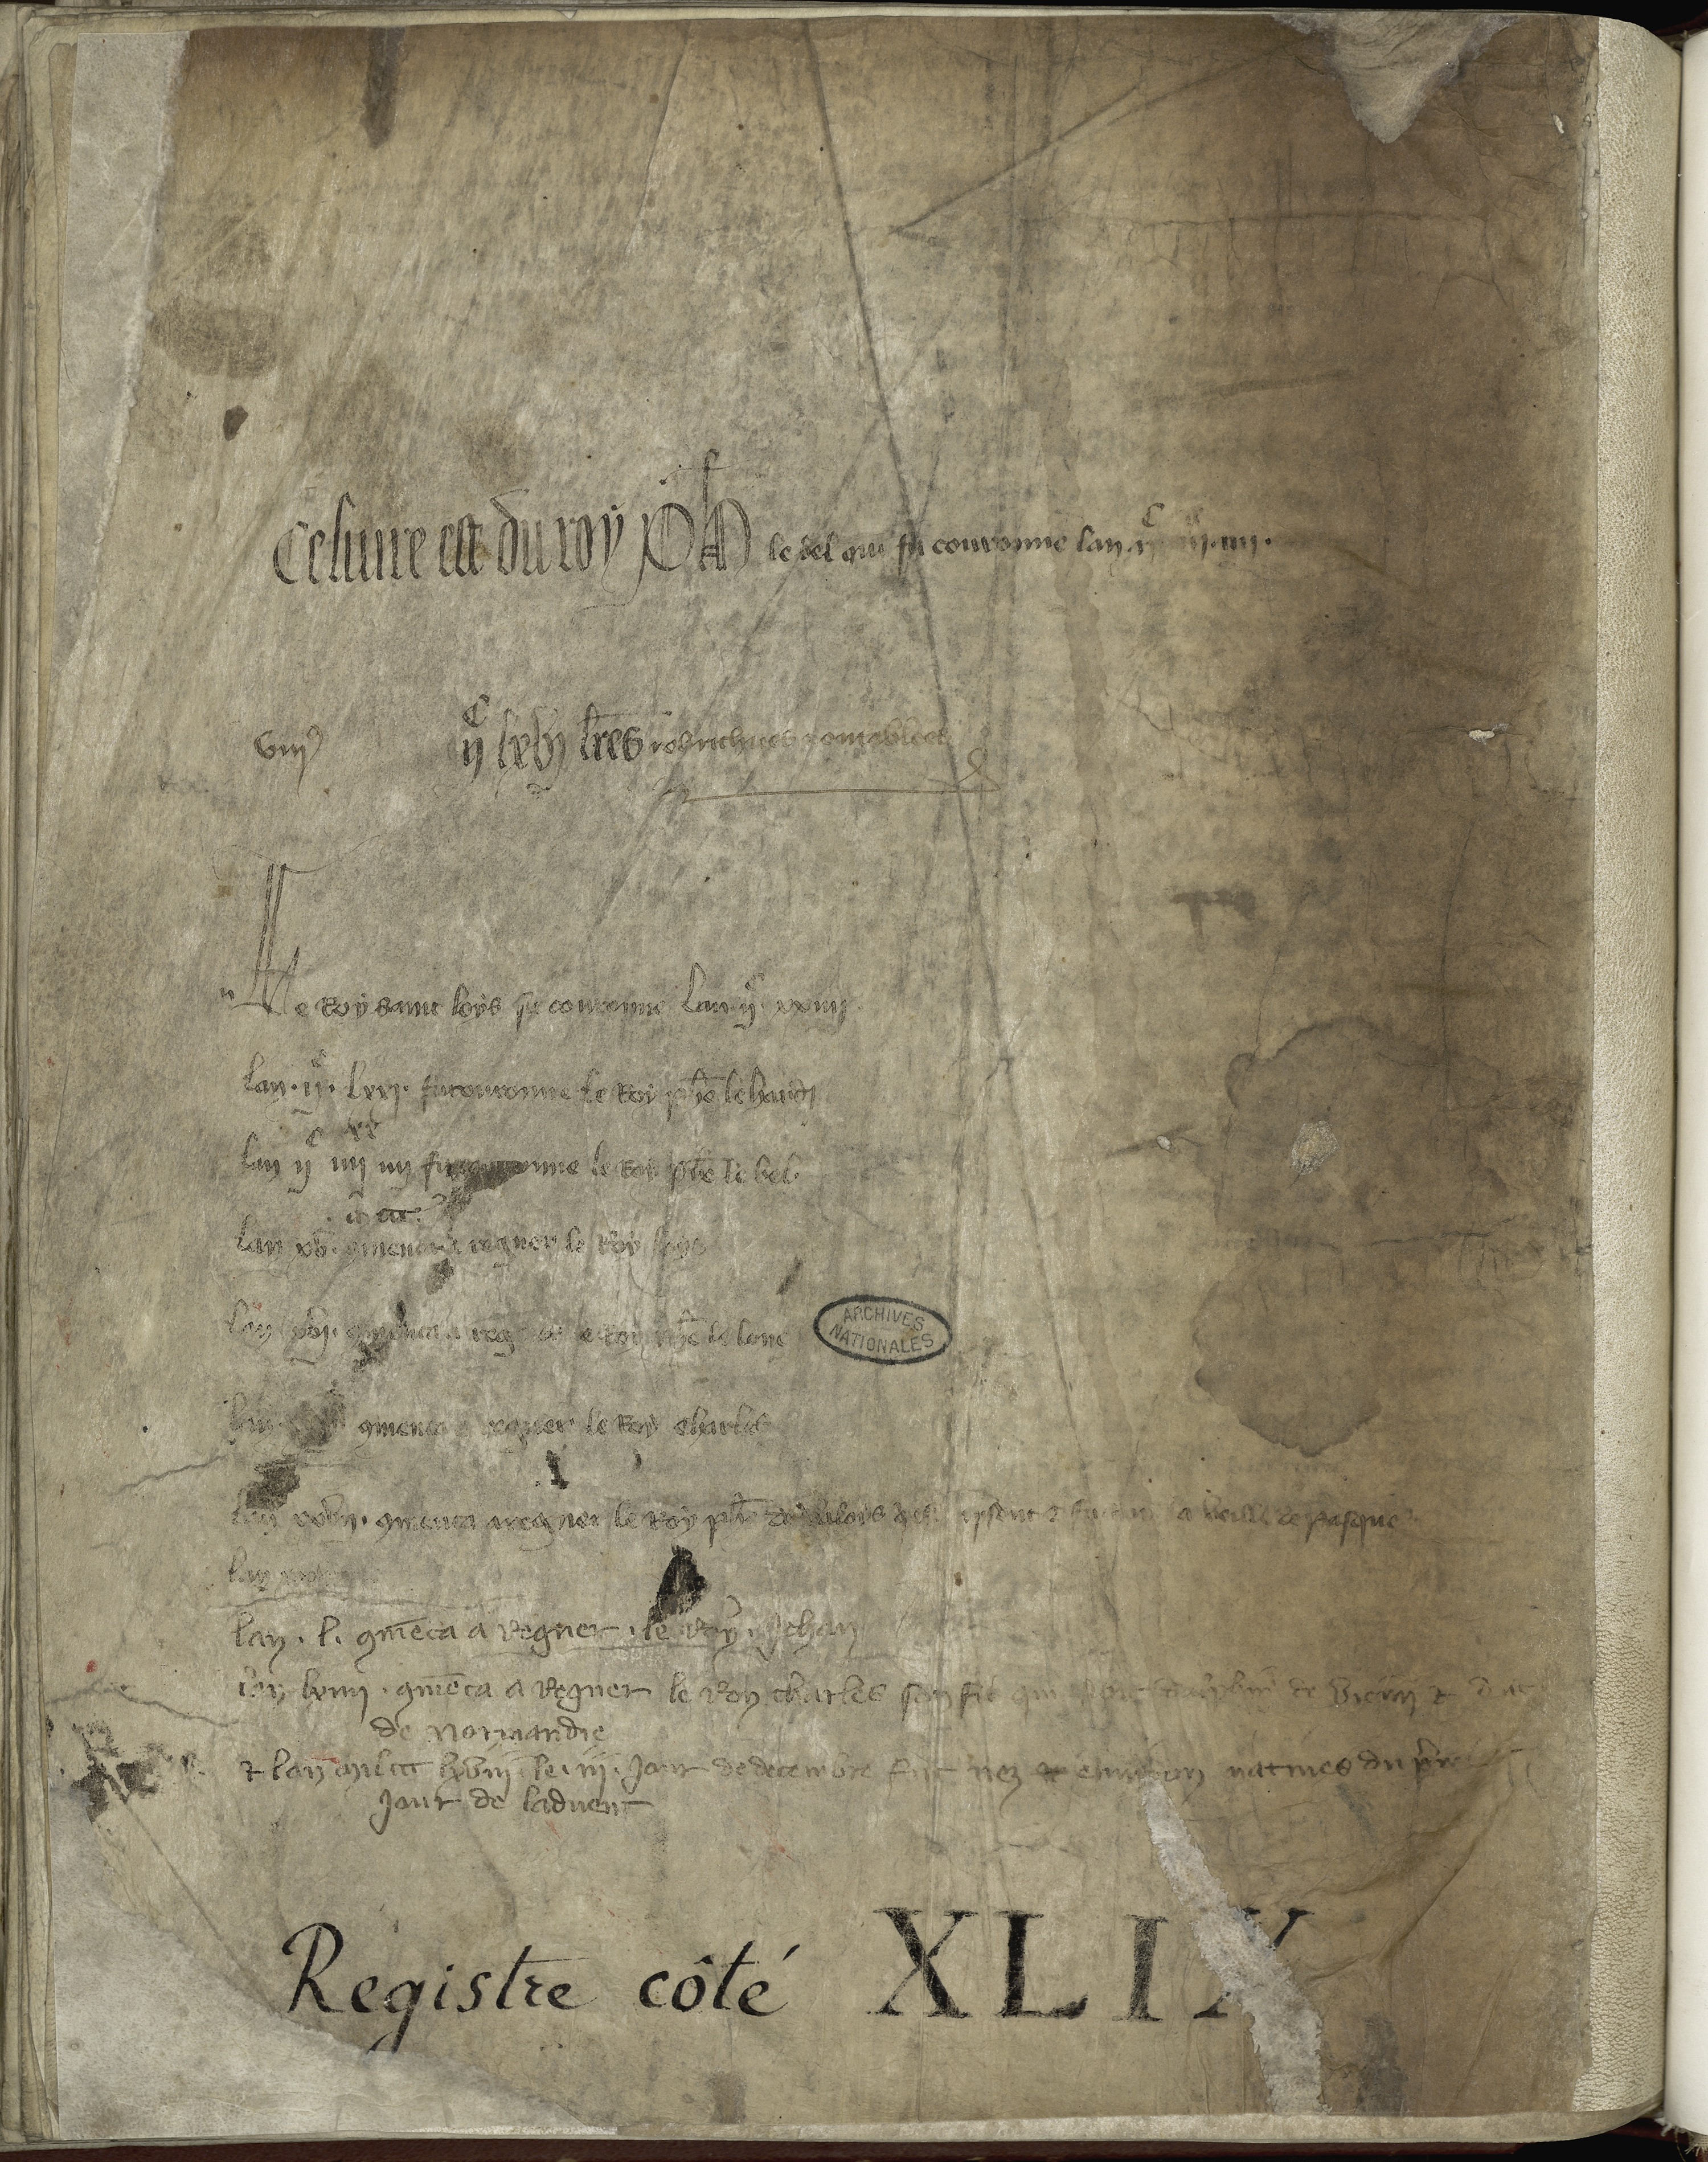 Ce livre est du roy Ph le bel qui fu couronne lan ij c iiij xx iiij.
viij ij c lxvij lres
Le Roy saint loys fu couronne Lan ij c xxvij
lan . ij c . lxxj . fu couronne le Roy phe le hardi
lan ij c iiij xx iiij fu couronne le Roy phe le bel
m ccc
lan xv . 9menca a regner le Roy loys
lan xvj . 9menca a reg le Roy phe le lonc
lan 9menca regner le Roy charles
lan xxvij . 9menca a regner le Roy ph de valois la veille de pasques
lan
lan . l . 9meca a Regner . le Roy . Jehan
lan lxiiij . 9meca a Regner le Roy charles son filz qui de vienn & duc
de normandie
& lan mil ccc lxviij le . iij . Jour de decembre fut nez & environ matines du
Jour de ladvent
ARCHIVES
NATIONALES
Registre côté XLIX